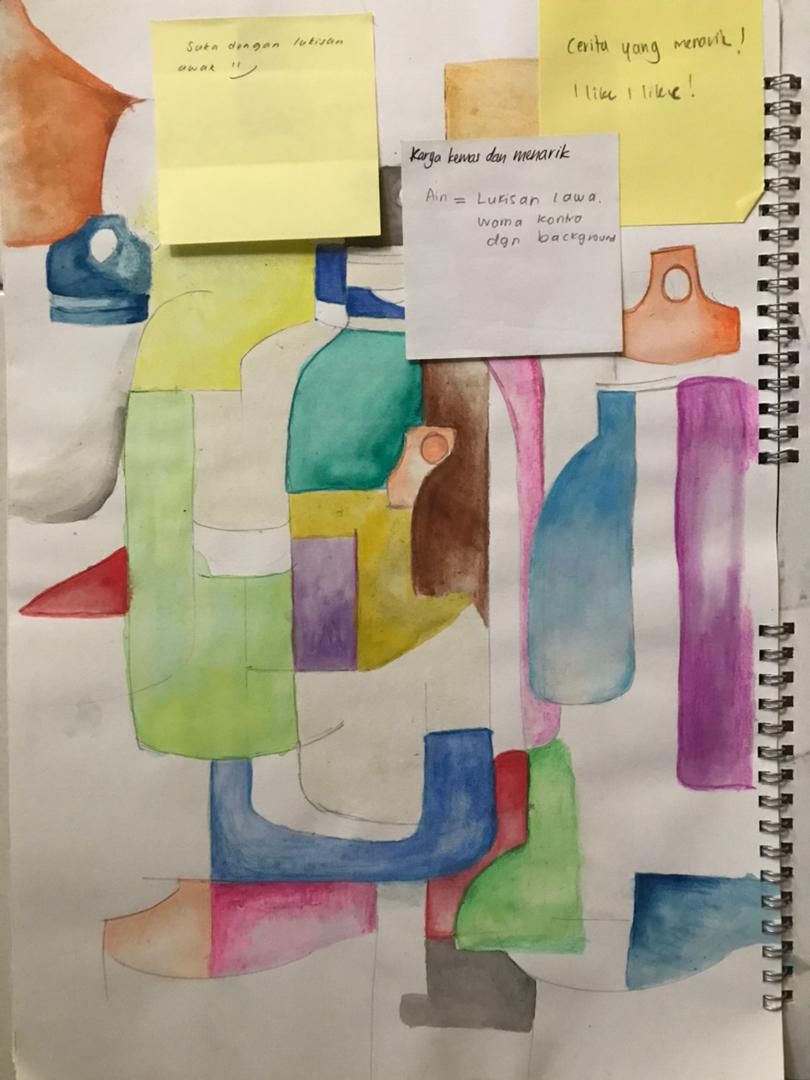 Suka dengan lukisan
awak !!
Cerita yang menarik!
I like I like!
Karya kemas dan menarik
Ain = Lukisan lawa.
warna kontra
dgn background